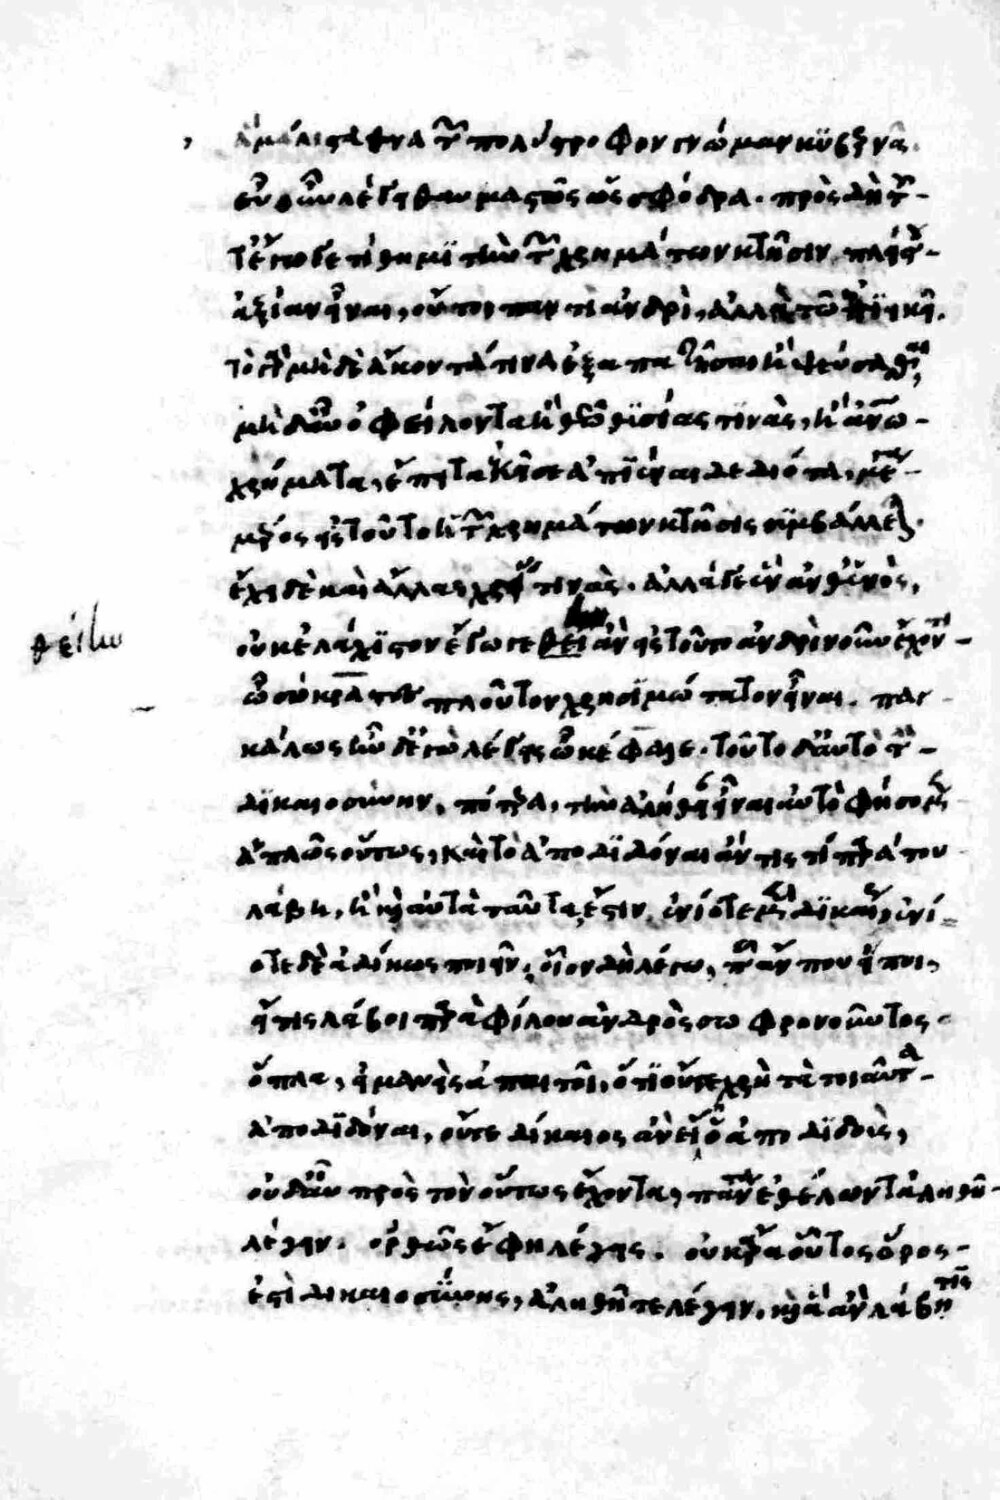 ἃ μάλιστα θνατῶν πολύστροφον γνώμαν κυβερνᾷ.
εὖ οὖν λέγει θαυμαστῶς ὡς σφόδρα. πρὸς δὴ τοῦ-
τ' ἔγωγε τίθημι τὴν τῶν χρημάτων κτῆσιν πλείστου
ἀξίαν εἶναι, οὔτοι παντὶ ἀνδρὶ, ἀλλὰ τῶ ἐπιεικεῖ.
τὸ γὰρ μηδὲ ἄκοντά τινα ἐξαπατῆσαι ἢ ψεύσασθαι,
μηδ' αὖ ὀφείλοντα ἢ θεῶ θυσίας τινὰς, ἢ ἀνθρώπω
χρήματα, ἔπειτα ἐκεῖσε ἀπιέναι δεδιότα, μέγα
μέρος εἰς τοῦτο ἡ τῶν χρημάτων κτῆσις συμβάλλεται.
ἔχει δὲ καὶ ἄλλας χρείας τινὰς. ἀλλά γε ἓν ἀνθ' ἑνὸς,
οὐκ ἐλάχιστον ἔγωγε θείην ἂν εἰς τοῦτο ἀνδρὶ νοῦν ἔχοντι
θείην
ὦ σώκρατες πλοῦτον χρησιμώτατον εἶναι. παγ-
κάλως ἦν δ' ἐγὼ λέγεις ὦ κέφαλε. τοῦτο δ' αὐτὸ τὴν
δικαιοσύνην, πότερα, τὴν ἀλήθειαν εἶναι αὐτὸ φήσομεν
ἁπλῶς οὕτως, καὶ τὸ ἀποδιδόναι ἄν τις τί παρά του
λάβη, ἢ καὶ αὐτὰ ταῦτα ἔστιν ἐνίοτε μὲν δικαίως, ἐνί-
οτε δὲ ἀδίκως ποιεῖν. οἷον δὴ λέγω, πᾶς ἄν που εἴποι,
εἴ τις λάβοι παρὰ φίλου ἀνδρὸς σωφρονοῦντος
ὅπλα, εἰ μανεὶς ἀπαιτοῖ, ὅτι οὔτε χρὴ τὰ τοιαῦτα
ἀποδιδόναι, οὔτε δίκαιος ἂν εἴη ὁ ἀποδιδοὺς,
οὐδ' αὖ πρὸς τὸν οὕτως ἔχοντα, πάντα ἐθέλων τἀληθῆ
λέγειν. ὀρθῶς ἔφη λέγεις. οὐκ ἄρα οὗτος ὅρος
ἐστὶ δικαιοσύνης, ἀληθῆ τε λέγειν, καὶ ἃ ἂν λάβη τις